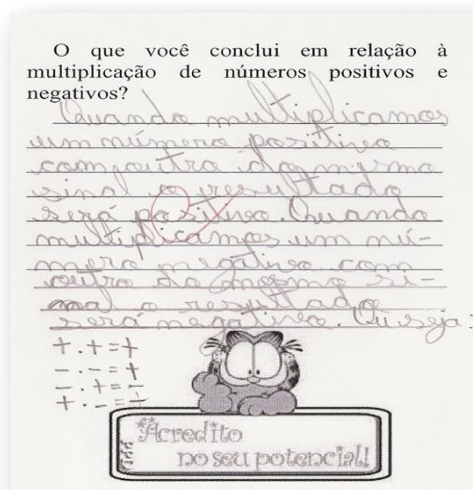 O que você conclui em relação à
multiplicação de números positivos e
negativos?
Quando multiplicamos
um número positivo
com outro do mesmo
sinal o resultado
será positivo. Quando
multiplicamos um nú-
mero negativo com
outro do mesmo si-
nal o resultado
será negativo. Ou seja:
+ . + = +
- . - = +
- . + = -
+ . - = -
Acredito
no seu potencial!